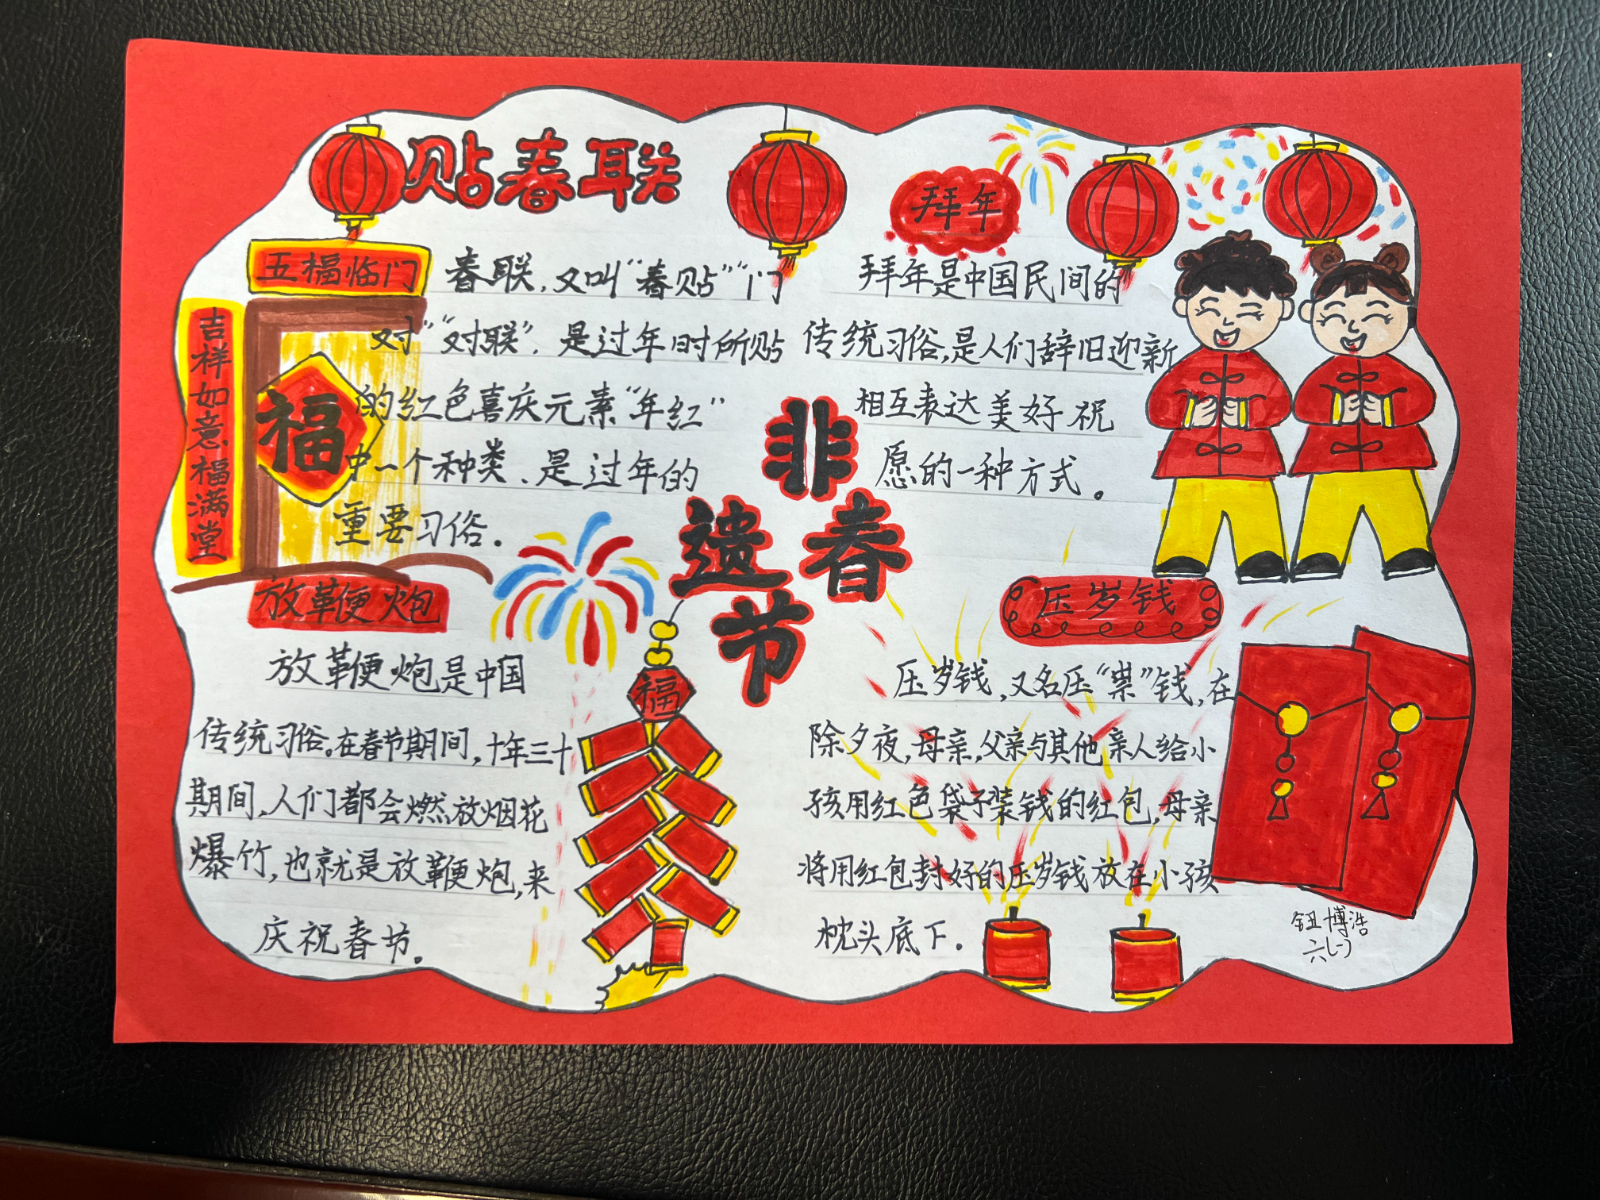 贴春联
五福临门
吉祥如意福满堂
福
春联,又叫“春贴”“门
对”“对联”.是过年时所贴
的红色喜庆元素“年红”
中一个种类、是过年的
重要习俗.
拜年
拜年是中国民间的
传统习俗,是人们辞旧迎新
相互表达美好祝
愿的一种方式。
非
遗春
节
放鞭炮
放鞭炮是中国
传统习俗。在春节期间,十年三十
期间,人们都会燃放烟花
爆竹,也就是放鞭炮,来
庆祝春节。
福
压岁钱
压岁钱,又名压“祟”钱,在
除夕夜,母亲,父亲与其他亲人给小
孩用红色袋子装钱的红包,母亲
将用红包封好的压岁钱放在小孩
枕头底下.
钮博浩
六(一)